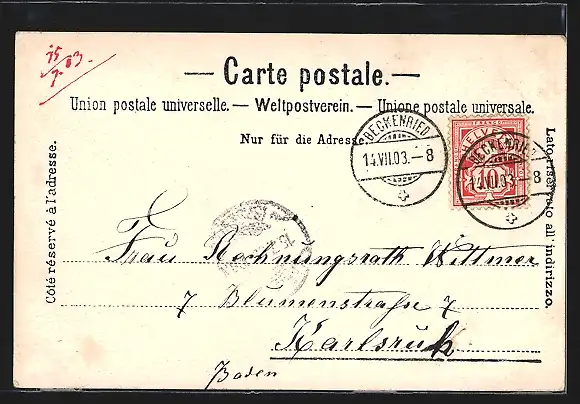 15/7. 03.
— Carte postale. —
Union postale universelle. — Weltpostverein. — Unione postale universale.
Nur für die Adresse.
Côté réservé à l'adresse.
Lato riservato all'indirizzo.
BECKENRIED
14.VII.03.–8
HELVETIA
FRANCO
10
BECKENRIED
14.VII.03.–8
Frau Rechnungsrath Wittmer
7 Blumenstraße 7
Karlsruh
Baden